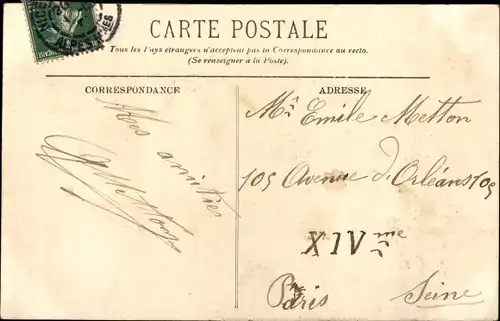 CARTE POSTALE
Tous les Pays étrangers n'acceptent pas la Correspondance au recto.
(Se renseigner à la Poste).
CORRESPONDANCE
Mes amitiés
ADRESSE
Mr Emile Metton
105 Avenue d'Orléans 105
XIVème
Paris Seine